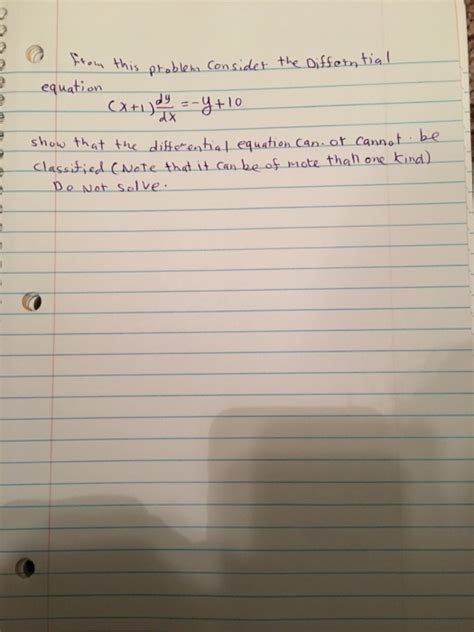 From this problem Consider the Differntial
equation
(x+1) dy/dx = -y+10
show that the differential equation can or cannot be
classified (Note that it can be of more than one kind)
Do Not solve.